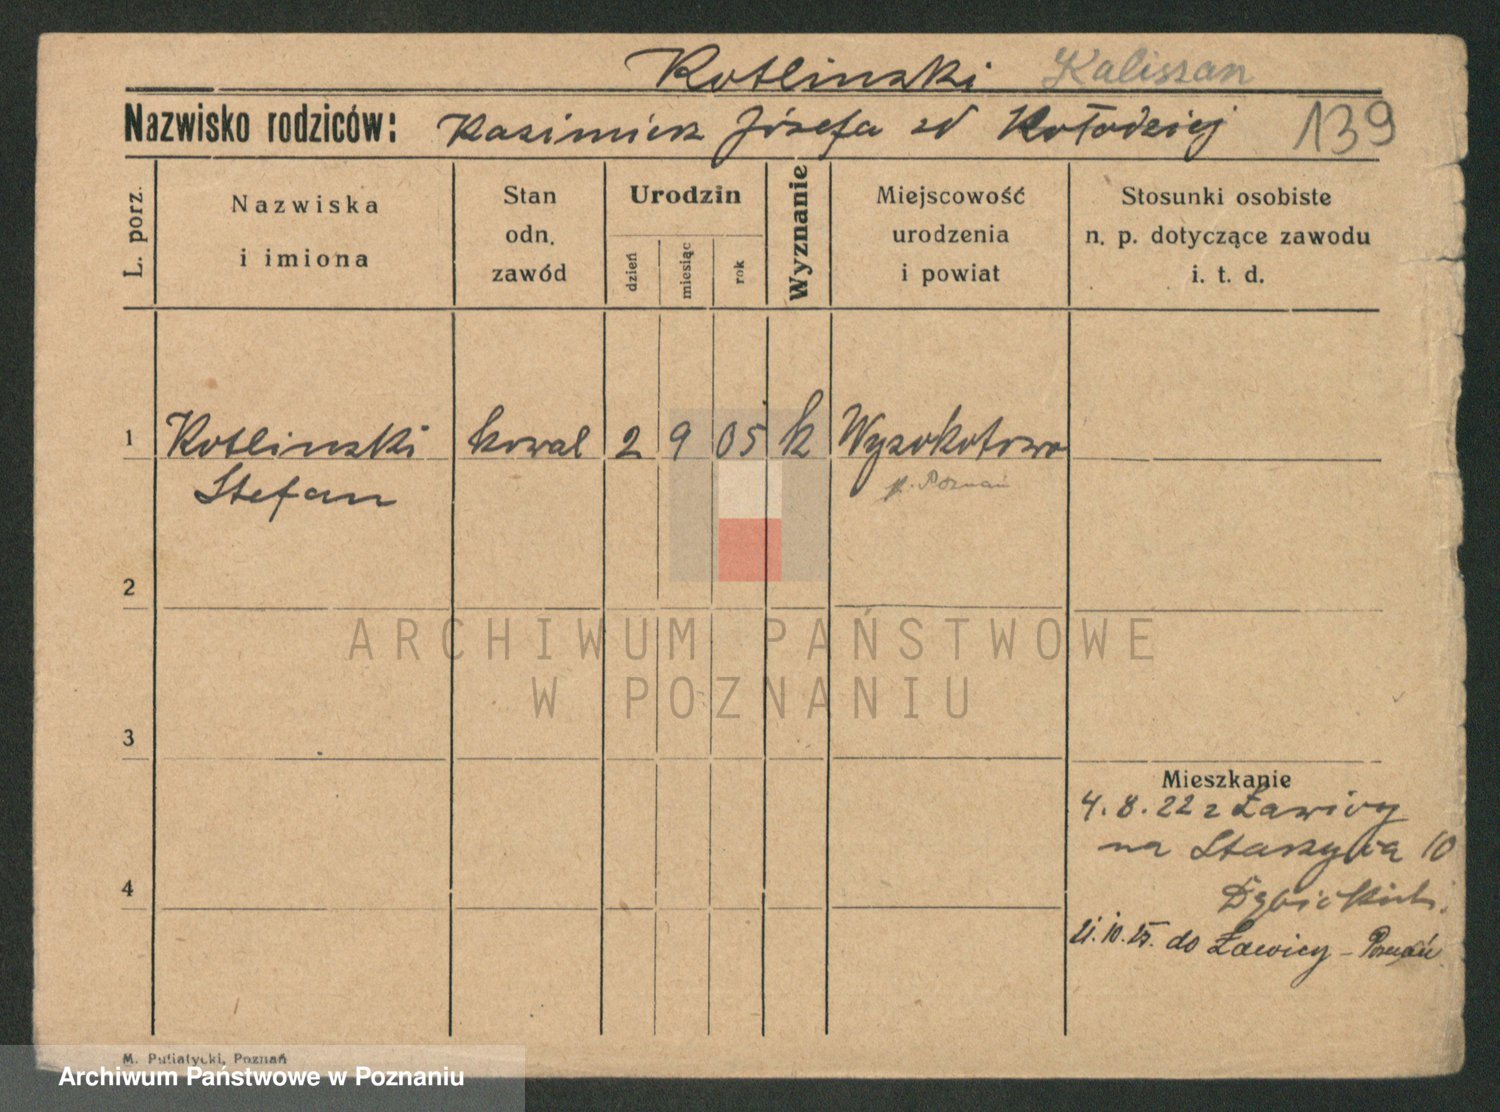 Kotlinski Kaliszan
Nazwisko rodziców: Kazimierz Józefa zd Kołodziej 139
L. porz.
Nazwiska
i imiona
Stan
odn.
zawód
Urodzin
dzień
miesiąc
rok
Wyznanie
Miejscowość
urodzenia
i powiat
Stosunki osobiste
n. p. dotyczące zawodu
i. t. d.
1 Kotlinski kowal 2 9 05 k Wysokotowo
Stefan p. Poznań
2
ARCHIWUM PAŃSTWOWE
W POZNANIU
3
Mieszkanie
4.8.22 z Ławicy
na Staszyca 10
4
21.10.25. do Ławicy - Poznań
M. Putiatycki, Poznań
Archiwum Państwowe w Poznaniu